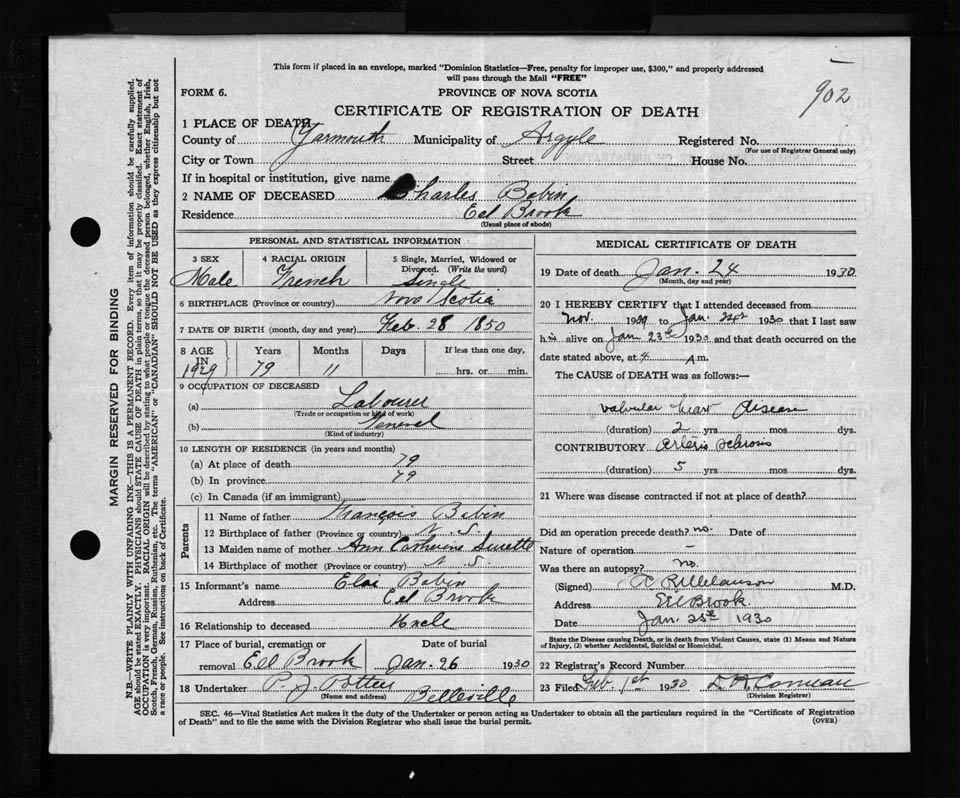 This form if placed in an envelope, marked "Dominion Statistics—Free, penalty for improper use, $300," and properly addressed
will pass through the Mail "FREE"
902
FORM 6.
PROVINCE OF NOVA SCOTIA
CERTIFICATE OF REGISTRATION OF DEATH
1 PLACE OF DEATH
County of Yarmouth Municipality of Argyle Registered No.
(For use of Registrar General only)
City or Town Street House No.
If in hospital or institution, give name
2 NAME OF DECEASED Charles Babin
Residence Eel Brook
(Usual place of abode)
PERSONAL AND STATISTICAL INFORMATION
3 SEX 4 RACIAL ORIGIN 5 Single, Married, Widowed or
Divorced. (Write the word)
Male French Single
6 BIRTHPLACE (Province or country) Nova Scotia
7 DATE OF BIRTH (month, day and year) Feb. 28 1850
8 AGE Years Months Days If less than one day,
IN
1929 79 11 hrs. or min.
9 OCCUPATION OF DECEASED
(a) Labourer
(Trade or occupation or kind of work)
(b) General
(Kind of industry)
10 LENGTH OF RESIDENCE (in years and months)
(a) At place of death 79
(b) In province 79
(c) In Canada (if an immigrant)
Parents
11 Name of father François Babin
12 Birthplace of father (Province or country) N. S.
13 Maiden name of mother Ann Catherine Surette
14 Birthplace of mother (Province or country) N. S.
15 Informant's name Eloi Babin
Address Eel Brook
16 Relationship to deceased Uncle
17 Place of burial, cremation or Date of burial
removal Eel Brook Jan. 26 1930
18 Undertaker P. J. Pottier
(Name and address) Belleville
MEDICAL CERTIFICATE OF DEATH
19 Date of death Jan. 24 1930
(Month, day and year)
20 I HEREBY CERTIFY that I attended deceased from
Nov. 1929 to Jan. 1930 that I last saw
him alive on Jan 23rd 1930 and that death occurred on the
date stated above, at 4 A.m.
The CAUSE of DEATH was as follows:—
Valvular heart disease
(duration) 2 yrs mos dys.
CONTRIBUTORY Arterio Sclerosis
(duration) 5 yrs mos dys.
21 Where was disease contracted if not at place of death?
Did an operation precede death? no. Date of
Nature of operation –
Was there an autopsy? no.
(Signed) M.D.
Address Eel Brook
Date Jan. 25th 1930
State the Disease causing Death, or in death from Violent Causes, state (1) Means and Nature
of Injury, (2) whether Accidental, Suicidal or Homicidal.
22 Registrar's Record Number
23 Filed Feb 1st 1930 Comeau
(Division Registrar)
SEC. 46—Vital Statistics Act makes it the duty of the Undertaker or person acting as Undertaker to obtain all the particulars required in the "Certificate of Registration
of Death" and to file the same with the Division Registrar who shall issue the burial permit.
(OVER)
MARGIN RESERVED FOR BINDING
N.B.—WRITE PLAINLY WITH UNFADING INK—THIS IS A PERMANENT RECORD. Every item of information should be carefully supplied.
AGE should be stated EXACTLY. PHYSICIANS should STATE CAUSE OF DEATH in plain terms, so that it may be properly classified. Exact statement of
OCCUPATION is very important. RACIAL ORIGIN will be described by stating to what people or tongue the deceased person belonged, whether English, Irish,
Scotch, French, German, Russian, Ruthenian, etc. The terms "AMERICAN" or "CANADIAN" SHOULD NOT BE USED as they express citizenship but not
a race or people. See instructions on back of Certificate.